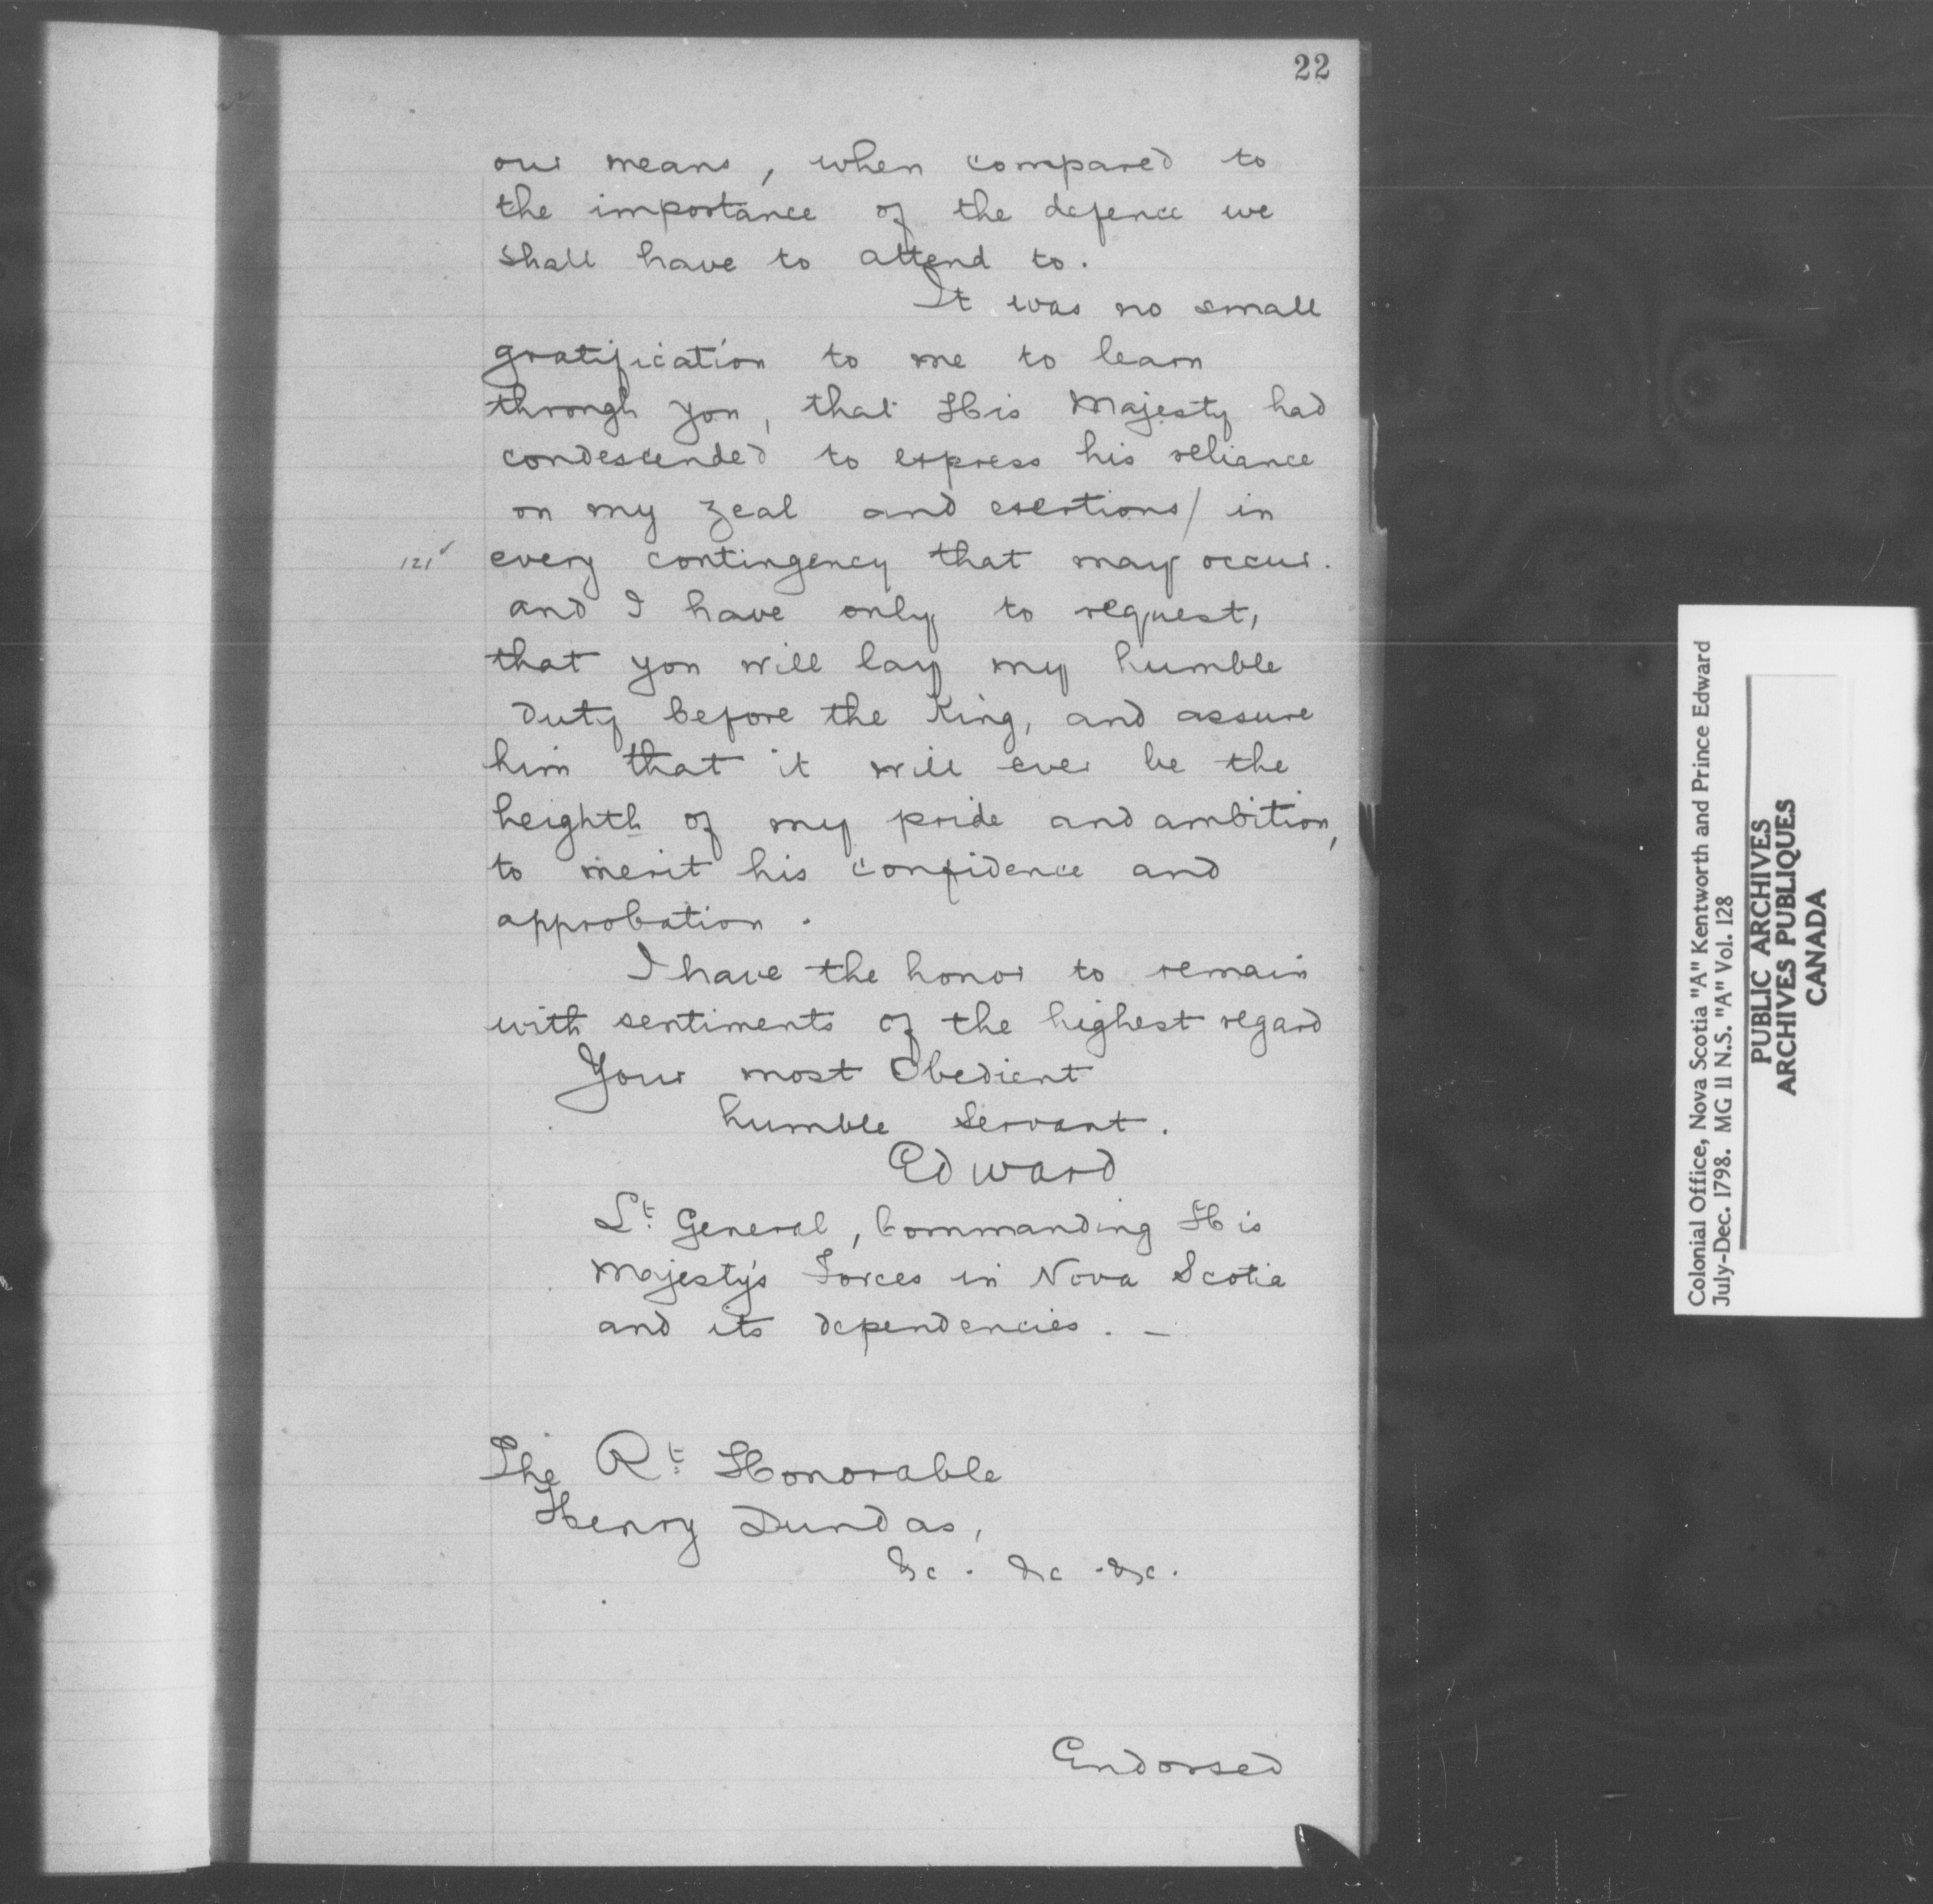 22
our means, when compared to
the importance of the defence we
shall have to attend to.
It was no small
gratification to me to learn
through you, that His Majesty had
condescended to express his reliance
on my zeal and exertions/ in
121
every contingency that may occur.
and I have only to request,
that you will lay my humble
Duty before the King, and assure
him that it will ever be the
heighth of my pride and ambition,
to merit his confidence and
approbation.
I have the honor to remain
with sentiments of the highest regard
Your most Obedient
humble Servant.
Edward
Lt. General, Commanding His
Majesty's Forces in Nova Scotia
and its dependencies. -
The Rt. Honorable
Henry Dundas,
&c. &c. &c.
Endorsed
Colonial Office, Nova Scotia "A" Kentworth and Prince Edward
July-Dec. 1798. MG 11 N.S. "A" Vol. 128
PUBLIC ARCHIVES
ARCHIVES PUBLIQUES
CANADA